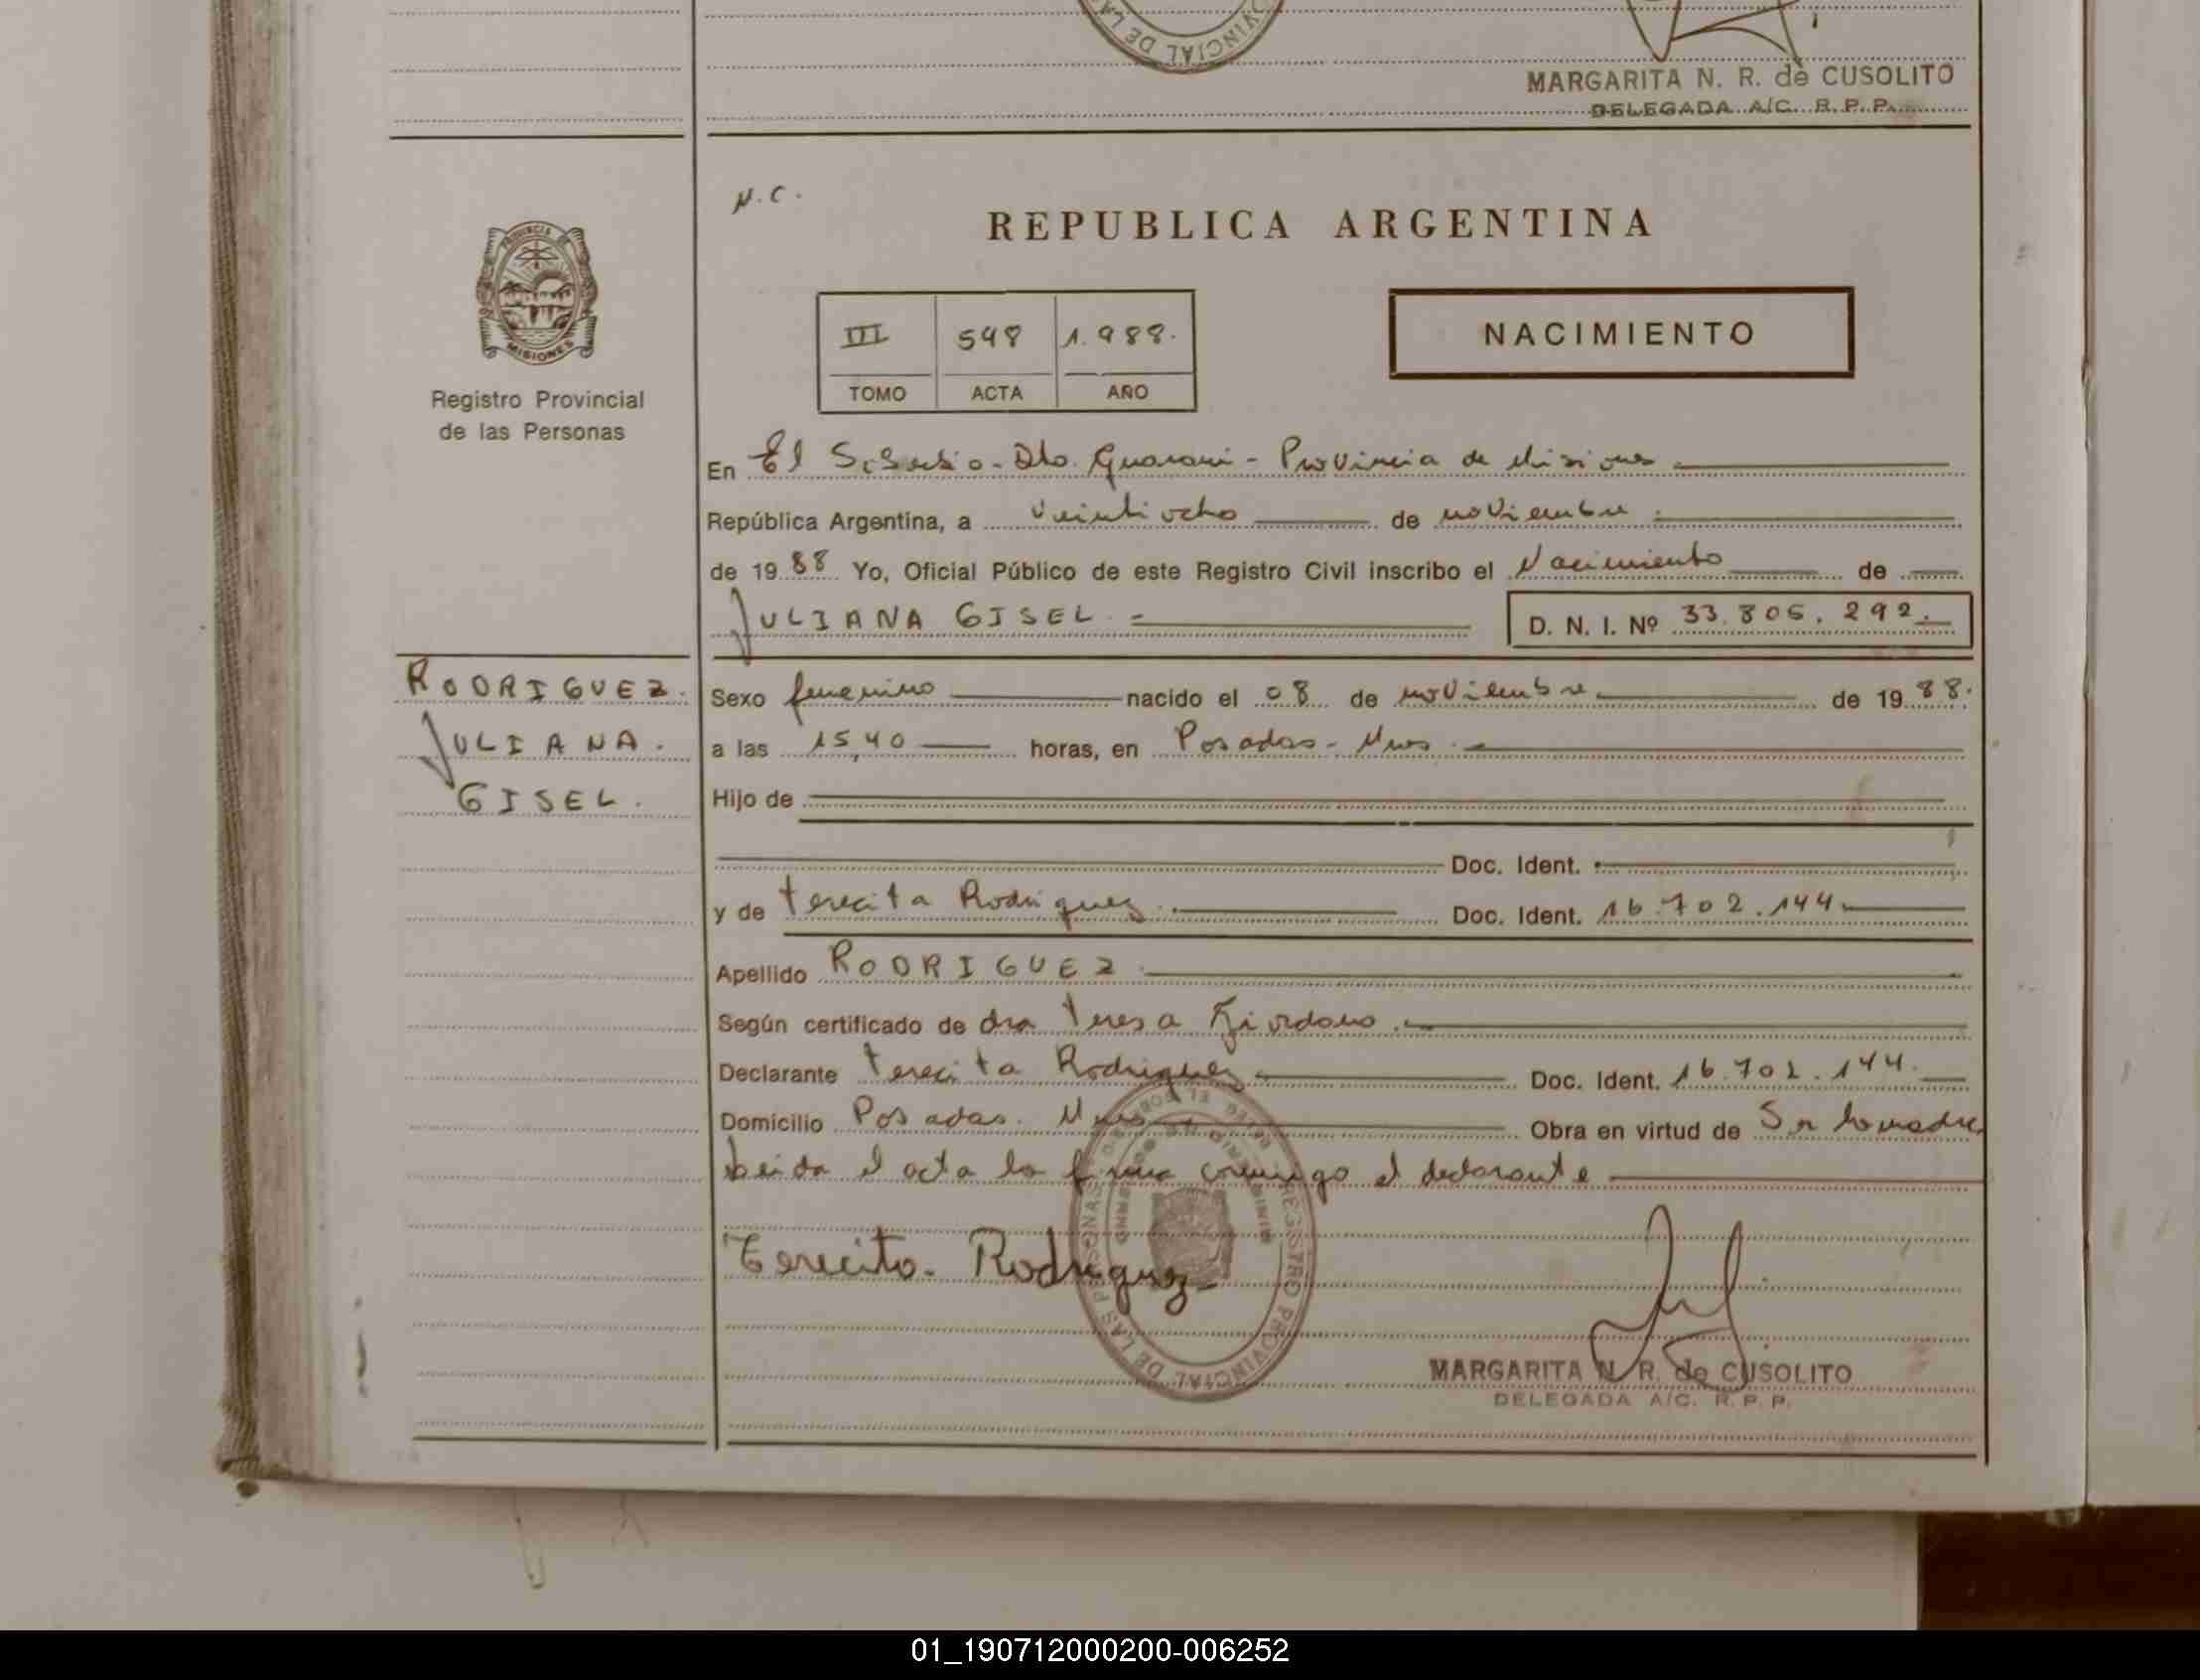 MARGARITA N. R. de CUSOLITO
DELEGADA A/C. R. P. P.
N.C.
REPUBLICA ARGENTINA
PROVINCIA DE
MISIONES
Registro Provincial
de las Personas
III 548 1.988.
TOMO ACTA AÑO
NACIMIENTO
En El Soberbio - Dto. Guarani - Provincia de Misiones
República Argentina, a veintiocho de noviembre
de 1988 Yo, Oficial Público de este Registro Civil inscribo el Nacimiento de
JULIANA GISEL.
D. N. I. Nº 33.805.292.
RODRIGUEZ.
JULIANA.
GISEL.
Sexo femenino nacido el 08 de noviembre de 1988.
a las 15,40 horas, en Posadas - Mnes.
Hijo de
Doc. Ident.
y de Terecita Rodriguez. Doc. Ident. 16.702.144
Apellido RODRIGUEZ
Según certificado de dra Teresa
Declarante Terecita Rodriguez Doc. Ident. 16.702.144.
Domicilio Posadas. Mnes Obra en virtud de Ser la madre
Leida el acta la firma conmigo el declarante
Terecita. Rodriguez
REGISTRO PROVINCIAL DE LAS PERSONAS
MARGARITA N. R. de CUSOLITO
DELEGADA A/C. R. P. P.
01_190712000200-006252